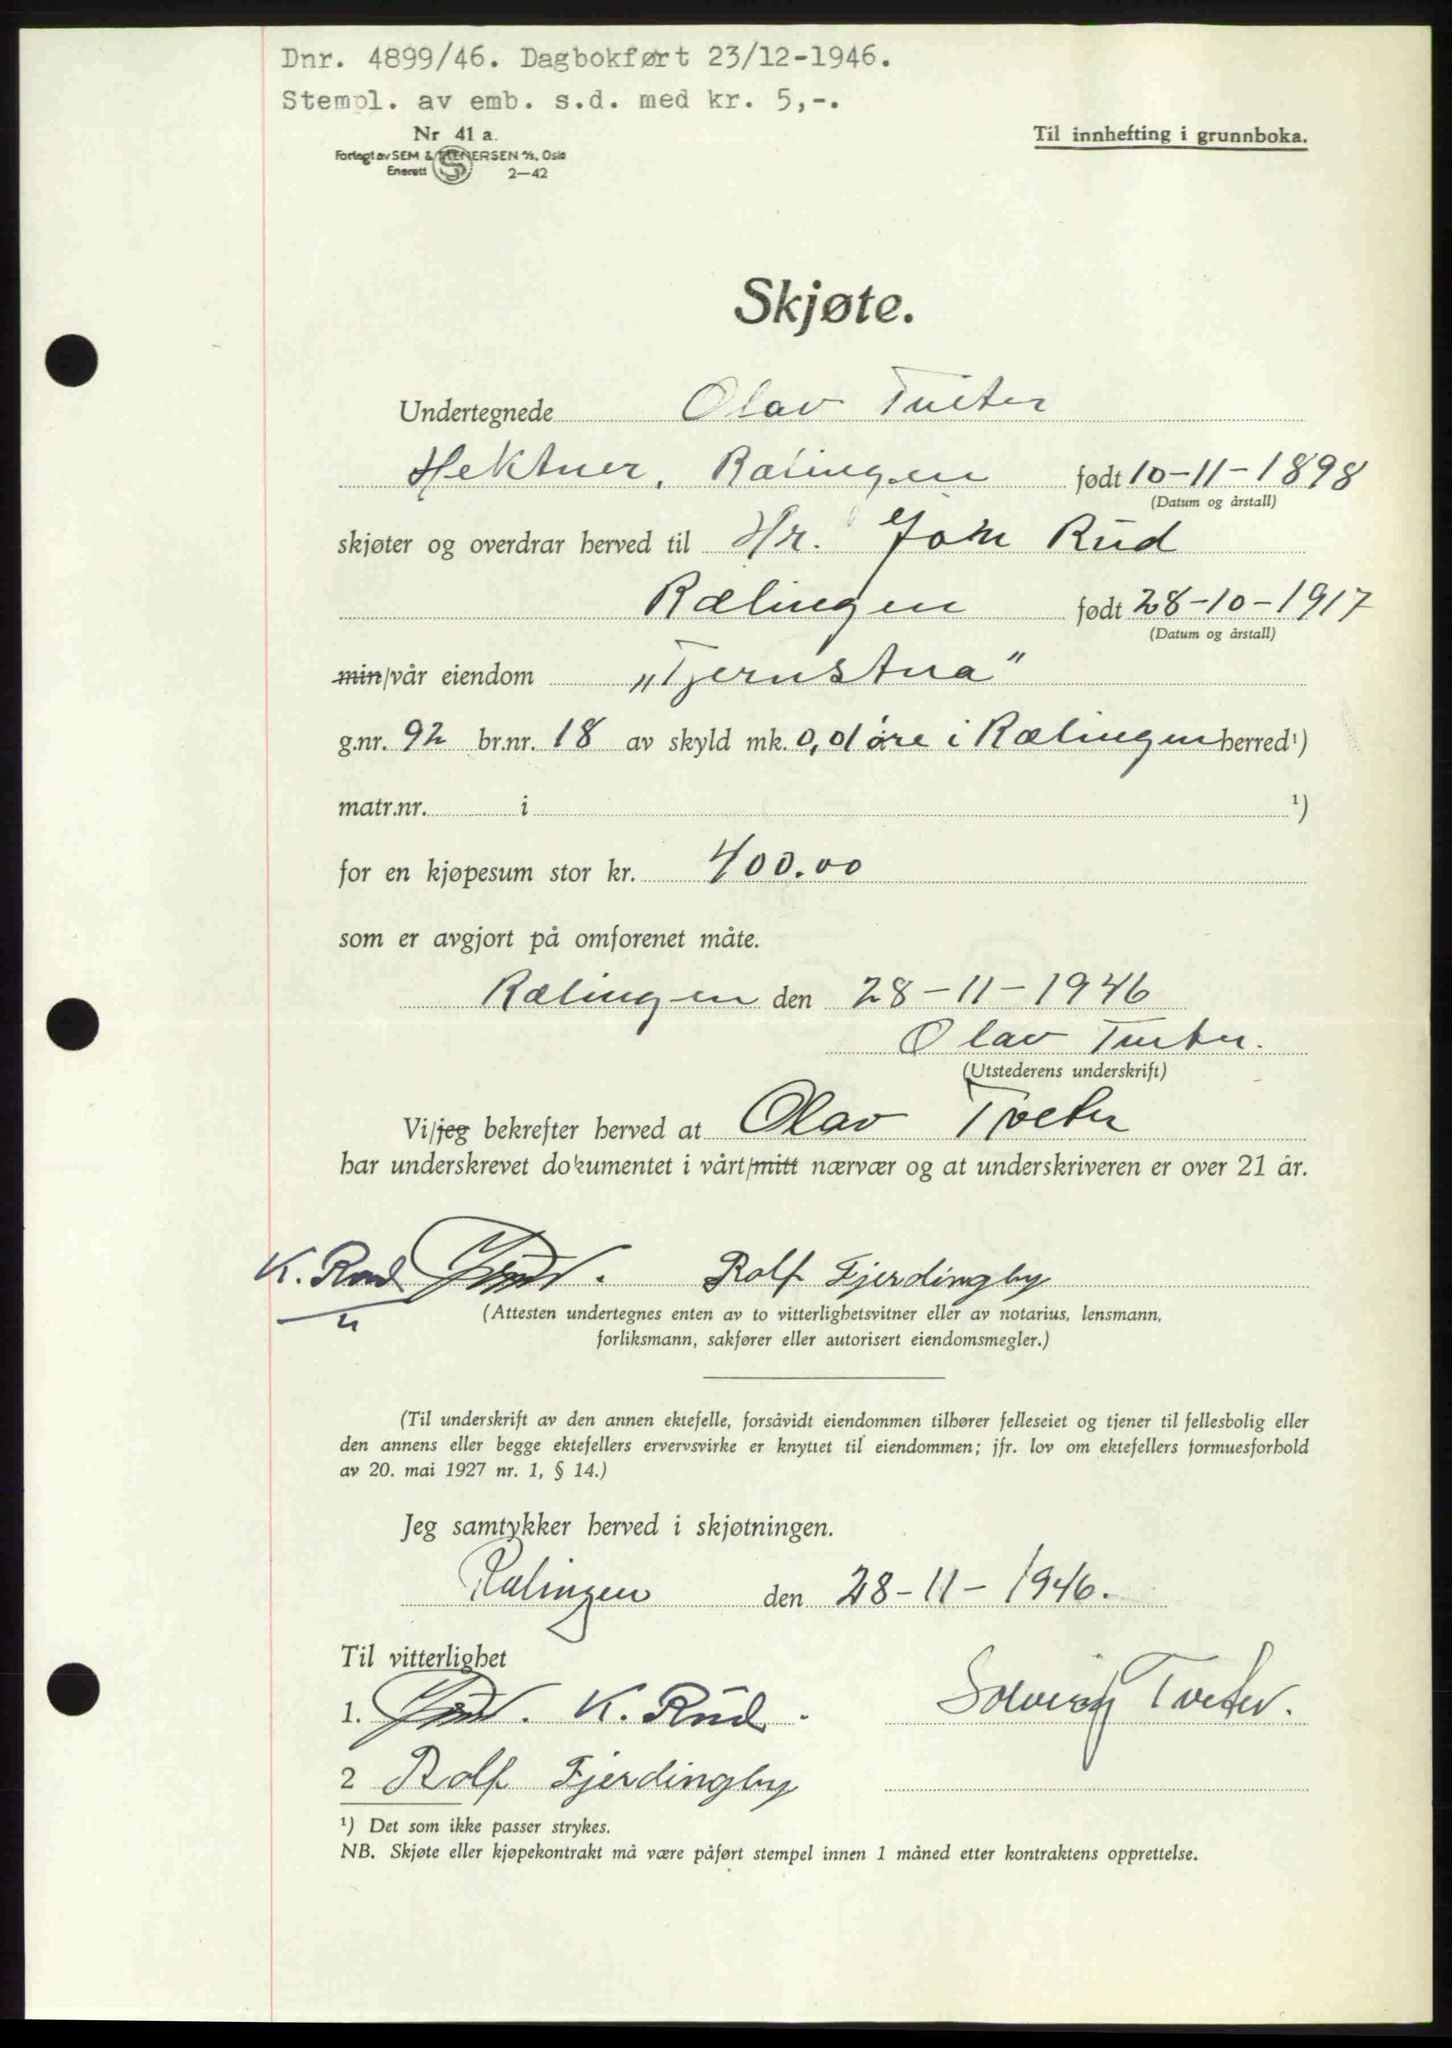 Dnr. 4899/46. Dagbokført 23/12-1946.
Stempl. av emb. s.d. med kr. 5,-.
Nr 41 a.
Til innhefting i grunnboka.
Forlagt av SEM & STENERSEN A/S, Oslo
Enerett S 2—42
Skjøte.
Undertegnede Olav Tveter
Hektner, Rælingen født 10-11-1898
(Datum og årstall)
skjøter og overdrar herved til Hr. John Rud
Rælingen født 28-10-1917
(Datum og årstall)
min/vår eiendom „Tjernstua”
g.nr. 92 br.nr. 18 av skyld mk. 0,01 øre i Rælingen herred ¹)
matr.nr. i ¹)
for en kjøpesum stor kr. 400.00
som er avgjort på omforenet måte.
Rælingen den 28-11-1946
Olav Tveter.
(Utstederens underskrift)
Vi/jeg bekrefter herved at Olav Tveter
har underskrevet dokumentet i vårt/mitt nærvær og at underskriveren er over 21 år.
K. Rud Rolf Fjerdingby
(Attesten undertegnes enten av to vitterlighetsvitner eller av notarius, lensmann,
forliksmann, sakfører eller autorisert eiendomsmegler.)
(Til underskrift av den annen ektefelle, forsåvidt eiendommen tilhører felleseiet og tjener til fellesbolig eller
den annens eller begge ektefellers ervervsvirke er knyttet til eiendommen; jfr. lov om ektefellers formuesforhold
av 20. mai 1927 nr. 1, § 14.)
Jeg samtykker herved i skjøtningen.
Rælingen den 28-11-1946.
Til vitterlighet
1. K. Rud. Solveig Tveter.
2 Rolf Fjerdingby
¹) Det som ikke passer strykes.
NB. Skjøte eller kjøpekontrakt må være påført stempel innen 1 måned etter kontraktens opprettelse.